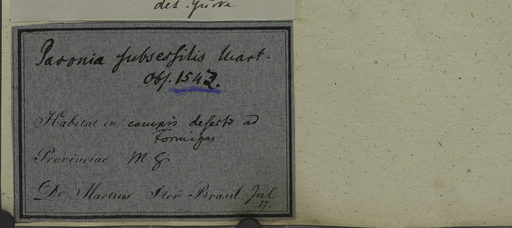 des. Güve
Pavonia subsessilis Mart.
Obs. 1542.
Habitat in campis desertis ad
Formigas
Provinciae M G.
Dr Martius Iter Brasil Jul
27.